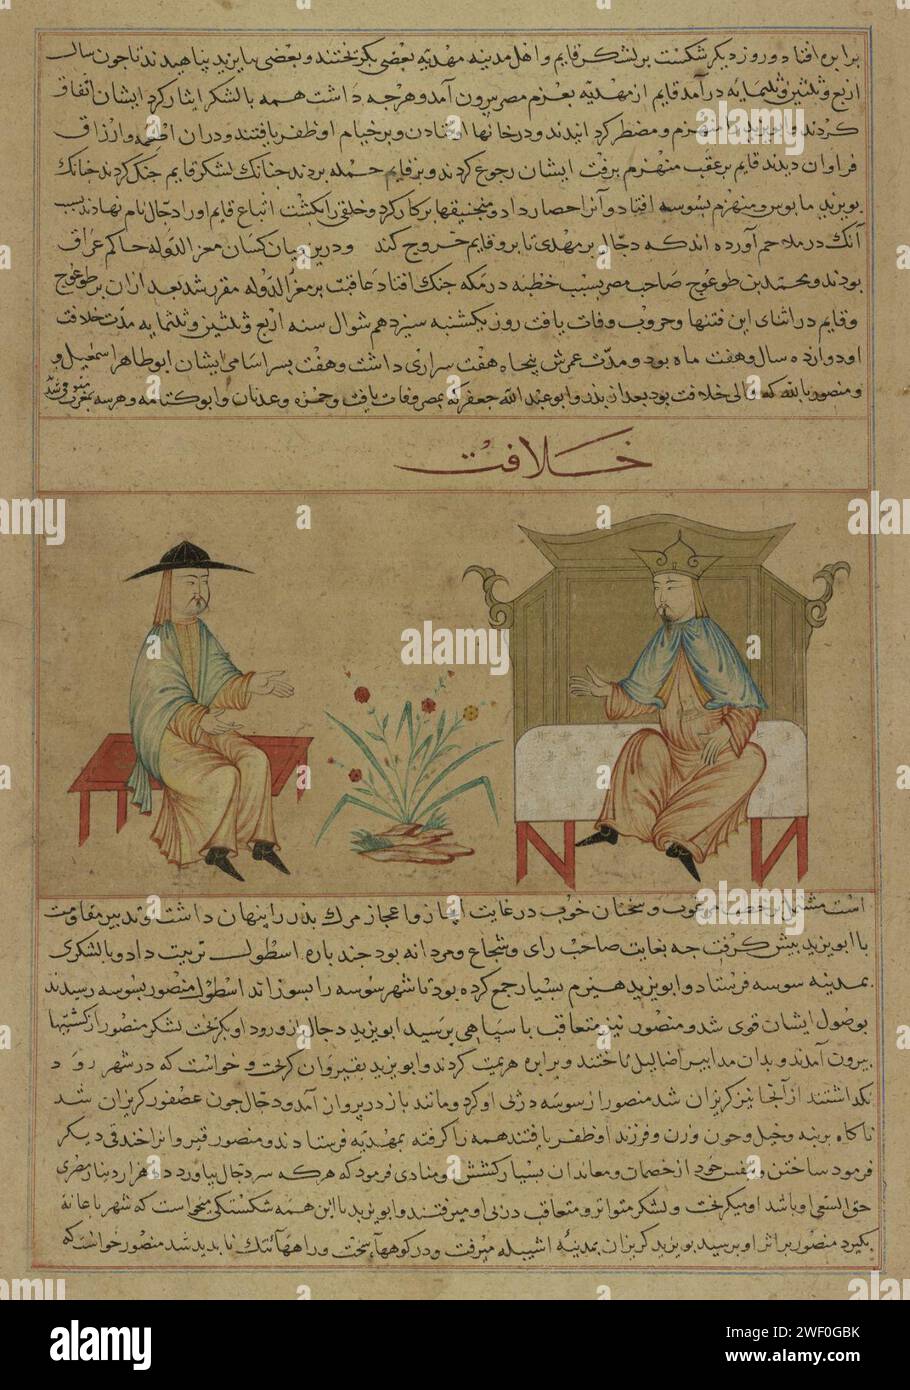 برابره افتاد و روز دیکر شکست بر لشکر قایم و اهل مدینه مهدیه بعضی بکریختند و بعضی بابایزید پناهیدند تا جون سال
اربع و ثلثین و ثلثمایه درآمد قایم از مهدیه بعزم مصر بیرون آمد و هرجه داشت همه با لشکر ایثار کرد ایشان اتفاق
کردند و بویزید را منهزم و مضطر کردانیدند و در خانها اوفتادند و بر خیام او ظفر یافتند و دران اطعمه و ارزاق
فراوان دیدند قایم بر عقب منهزم برفت ایشان رجوع کردند و بر قایم حمله بردند جنانک لشکر قایم جنک کردند جنانک
بویزید مایوس و منهزم بسوسه افتاد و آنرا حصار داد و منجنیقها بر کار کرد و خلقی را بکشت اتباع قایم او را دجال نام نهادند بسبب
آنک در ملاحم آورده اند که دجال بر مهدی تا بر و قایم خروج کند و درین میان کسان معز الدوله حاکم عراق
بودند و محمد بن طوغوج صاحب مصر بسبب خطبه در مکه جنک افتاد عاقبت بر معز الدوله مقرر شد بعد ازان بر طوغوج
و قایم در اثنای این فتنها و حروب وفات یافت روز یکشنبه سیزدهم شوال سنه اربع و ثلثین و ثلثمایه مدت خلافت
او دوازده سال و هفت ماه بود و مدت عمرش پنجاه هفت سراری داشت و هفت پسر اسامی ایشان ابو طاهر اسمعیل و
و منصور بالله که والی خلافت بود بعد از بدر و ابو عبد الله جعفر که بمصر وفات یافت و حمزه و عدنان و ابو کتامه و هر سه بمغرب
خلافت
است مشتمل بر خصب مرعوب و سخنان خوب در غایت ایجاز و اعجاز مرک بدر را پنهان داشت و تدبیر مقاومت
با ابویزید پیش کرفت جه بغایت صاحب رای و شجاع و مردانه بود جند باره اسطول تربیت داد و با لشکری
بمدینه سوسه فرستاد و ابویزید هیزم بسیار جمع کرده بود تا شهر سوسه را بسوزاند اسطول منصور بسوسه رسیدند
بوصول ایشان قوی شد و منصور نیز متعاقب با سپاهی برسید ابویزید دجال از ورود او بکریخت لشکر منصور از کشتیها
بیرون آمدند و بدان مدابیر اضالیل تاختند و برابره هزیمت کردند و ابویزید بقیروان کریخت و خواست که در شهر رود
نکذاشتند از آنجا نیز کریزان شد منصور از سوسه در پی او کرد و مانند باز در پرواز آمد و دجال جون عصفور کریزان شد
ناکاه بر بنه و خیل و زن و فرزند او ظفر یافتند همه را کرفته بمهدیه فرستادند و منصور قیروانرا خندقی دیکر
فرمود ساختن و بنفس خود از خصمان و معاندان بسیار بکشت و منادی فرمود که هرکه سر دجال بیاورد ده هزار دینار مصری
حق السعی او باشد او میکریخت و لشکر متواتر و متعاقب در پی او میرفتند و ابویزید با این همه شکستکی میخواست که شهر باغانه
بکیرد منصور بر اثر او برسید بویزید کریزان بمدینه اشبیله میرفت و در کوهها سخت و راهها تنک نابدید شد منصور خواست که
alamy
Image ID: 2WF0GBK
www.alamy.com